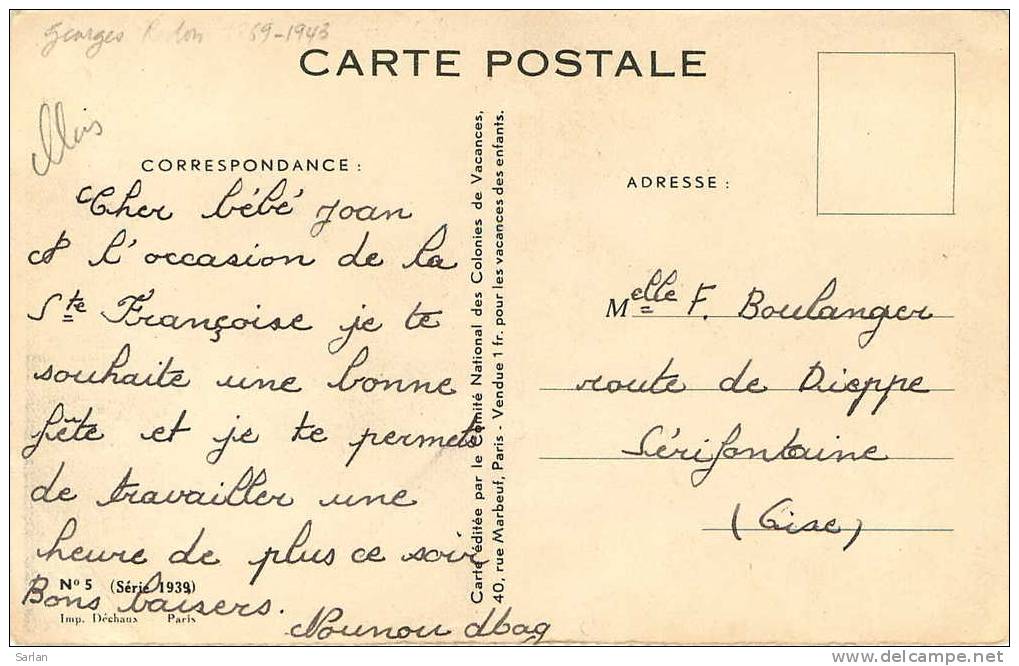 Georges 69-1943
CARTE POSTALE
CORRESPONDANCE :
Cher bébé Joan
A l'occasion de la
Ste Françoise je te
souhaite une bonne
fête et je te permets
de travailler une
heure de plus ce soir
Bons baisers.
Nounou
N° 5 (Série 1939)
Imp. Déchaux Paris
Carte éditée par le Comité National des Colonies de Vacances,
40, rue Marbeuf, Paris - Vendue 1 fr. pour les vacances des enfants.
ADRESSE :
Melle F. Boulanger
route de Dieppe
Sérifontaine
(Oise)
Sarlan
www.delcampe.net